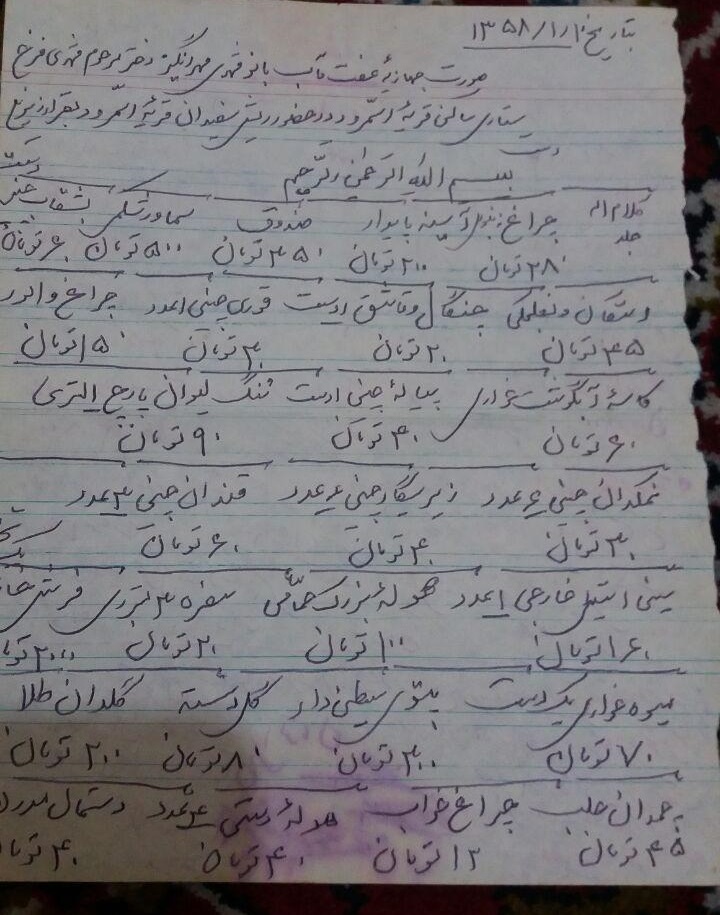 بتاریخ ۱۳۵۸/۱/۱۰
صورت جهازیهٔ عفت مآب بانو فهدی مهرانگیز دختر مرحوم فهدی فرخ
ساکن قریهٔ و در حضور ریش سفیدان قریهٔ و بقرار زیر
است
بسم الله الرحمن الرحیم
کلام اله چراغ زنبوری آیینه پایدار صندوق سماور شکی بشقاب چینی
جلد
۲۸۰ تومان ۲۰۰ تومان ۳۵۰ تومان ۵۰۰ تومان ۶۰ تومان
و نعلبکی چنگال و قاشق ۱ دست قوری چینی ۱ عدد چراغ والور
۴۵ تومان ۲۰ تومان ۳۰ تومان ۱۵۰ تومان
کاسهٔ آبگوشت خوری پیالهٔ چینی ۱ دست تنگ لیوان پارچ ۱ لیتری
۶۰ تومان ۴۰ تومان ۹۰ تومان
نمکدان چینی ۶ عدد زیر سیگار چینی ۶ عدد قندان چینی ۳ عدد
۳۰ تومان ۴۰ تومان ۶۰ تومان
سینی استیل خارجی ۱ عدد حولهٔ بزرگ حمامی سفره ۳ متری فرش
۱۶۰ تومان ۱۰۰ تومان ۲۰ تومان ۲۰۰۰ تومان
میوه خوری یک دست پتوی دار گل دسته گلدان طلا
۷۰ تومان ۳۰۰ تومان ۸۰ تومان ۲۰۰ تومان
چمدان حلب چراغ خواب حولهٔ دستی ۴ عدد دستمال
۴۵ تومان ۱۲ تومان ۴۰ تومان ۴۰ تومان